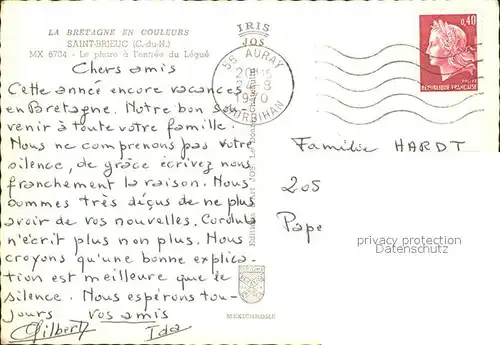 LA BRETAGNE EN COULEURS
SAINT-BRIEUC (C.-du-N.)
MX 6784 - Le phare à l'entrée du Légué
IRIS
JOS
56 AURAY
1970
MORBIHAN
0,40
REPUBLIQUE FRANÇAISE
Chers amis
Cette année encore vacances
en Bretagne. Notre bon sou
venir à toute votre famille.
Nous ne comprenons pas votre
silence, de grâce écrivez nous
franchement la raison. Nous
sommes très déçus de ne plus
avoir de vos nouvelles. Cordula
n'écrit plus non plus. Nous
croyons qu'une bonne explica-
tion est meilleure que le
silence. Nous espérons tou-
jours vos amis
Gilbert Ida
Familie HARDT
205
Pape
privacy protection
Datenschutz
MEXICHROME